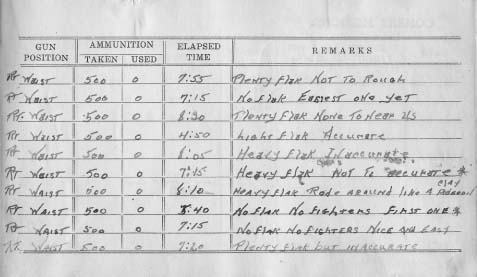 GUN POSITION AMMUNITION TAKEN USED ELAPSED TIME REMARKS
Rt WAIST 500 0 7:55 Plenty Flak Not To Rough
Rt WAIST 500 0 7:15 No Flak Easiest one yet
Rt. WAIST 500 0 8:30 Plenty Flak None To Near Us
Rt WAIST 500 0 4:50 Light Flak Accurate
Rt WAIST 500 0 8:05 Heavy Flak Inaccurate
Rt WAIST 500 0 7:15 Heavy Flak Not To accurate
Rt WAIST 500 0 8:10 Heavy Flak Rode around like a clay
Rt WAIST 500 0 8:40 No Flak No Fighters First one
Rt WAIST 500 0 7:15 No Flak No Fighters Nice and Easy
Rt WAIST 500 0 7:20 Plenty Flak but inaccurate